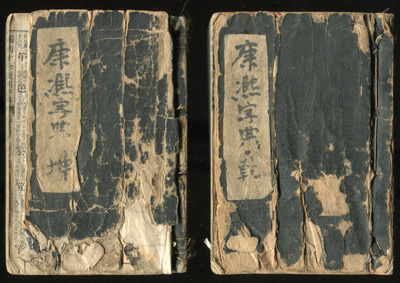 康熙字典 坤
康熙字典 乾